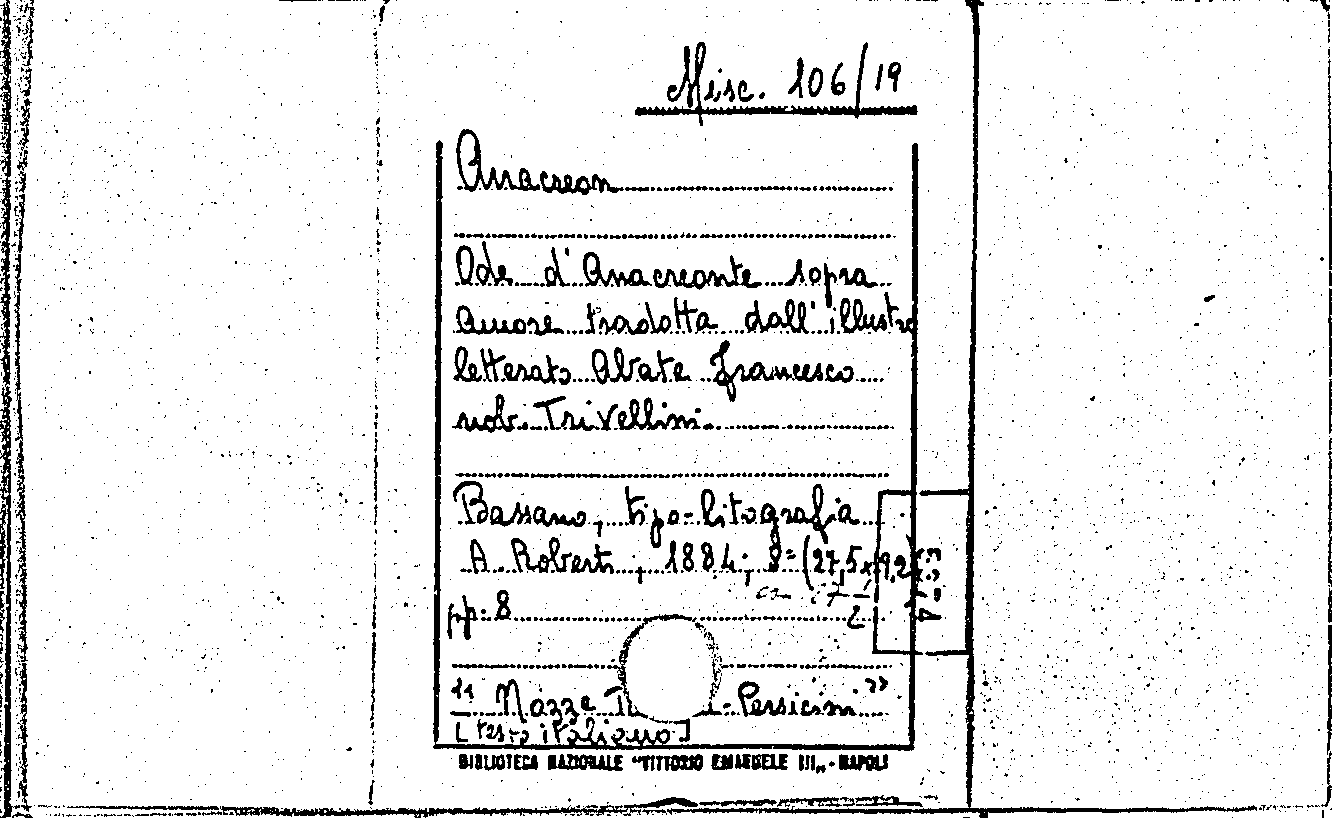 Misc. 106/19
Anacreon
Ode d'Anacreonte sopra
amore tradotta dall'illustre
letterato Abate Francesco
nob. Trivellini.
Bassano, tipo-litografia
A. Roberti, 1884; 8° (27,5x19,2)
pp. 8
"Nozze -Persicini"
[testo italiano]
BIBLIOTECA NAZIONALE "VITTORIO EMANUELE III„ - NAPOLI